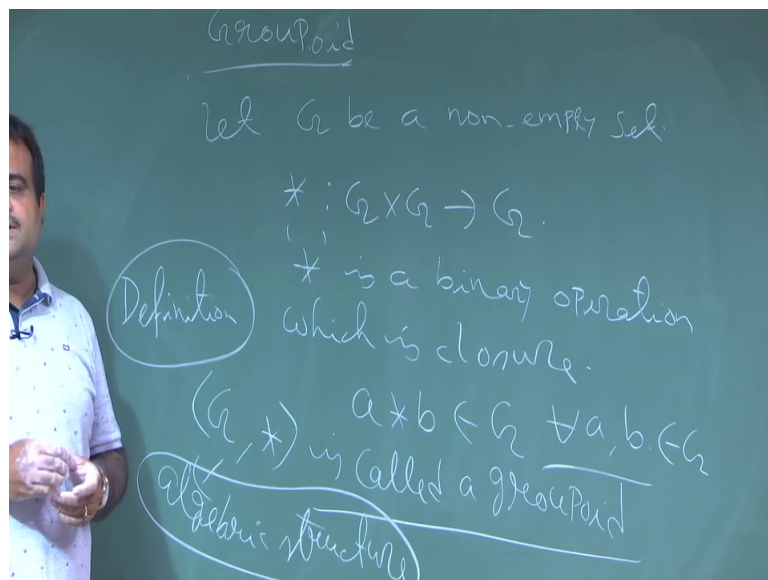 Groupoid
Let G be a non-empty set.
* : G × G → G.
" * "
is a binary operation
Definition
which is closure.
a * b ∈ G ∀ a, b ∈ G
(G, *) is called a groupoid
algebric structure